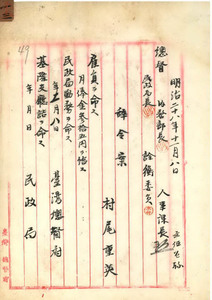 明治二十八年十一月八日
總督
民政局長
總務部長
詮衡委員
人事課長
辞令案
村尾重英
雇員ヲ命ス
月俸金参拾五円ヲ給ス
民政局勤務ヲ命ス
年 月八日
臺湾總督府
基隆支廳詰ヲ命ス
年 月 日
民政局